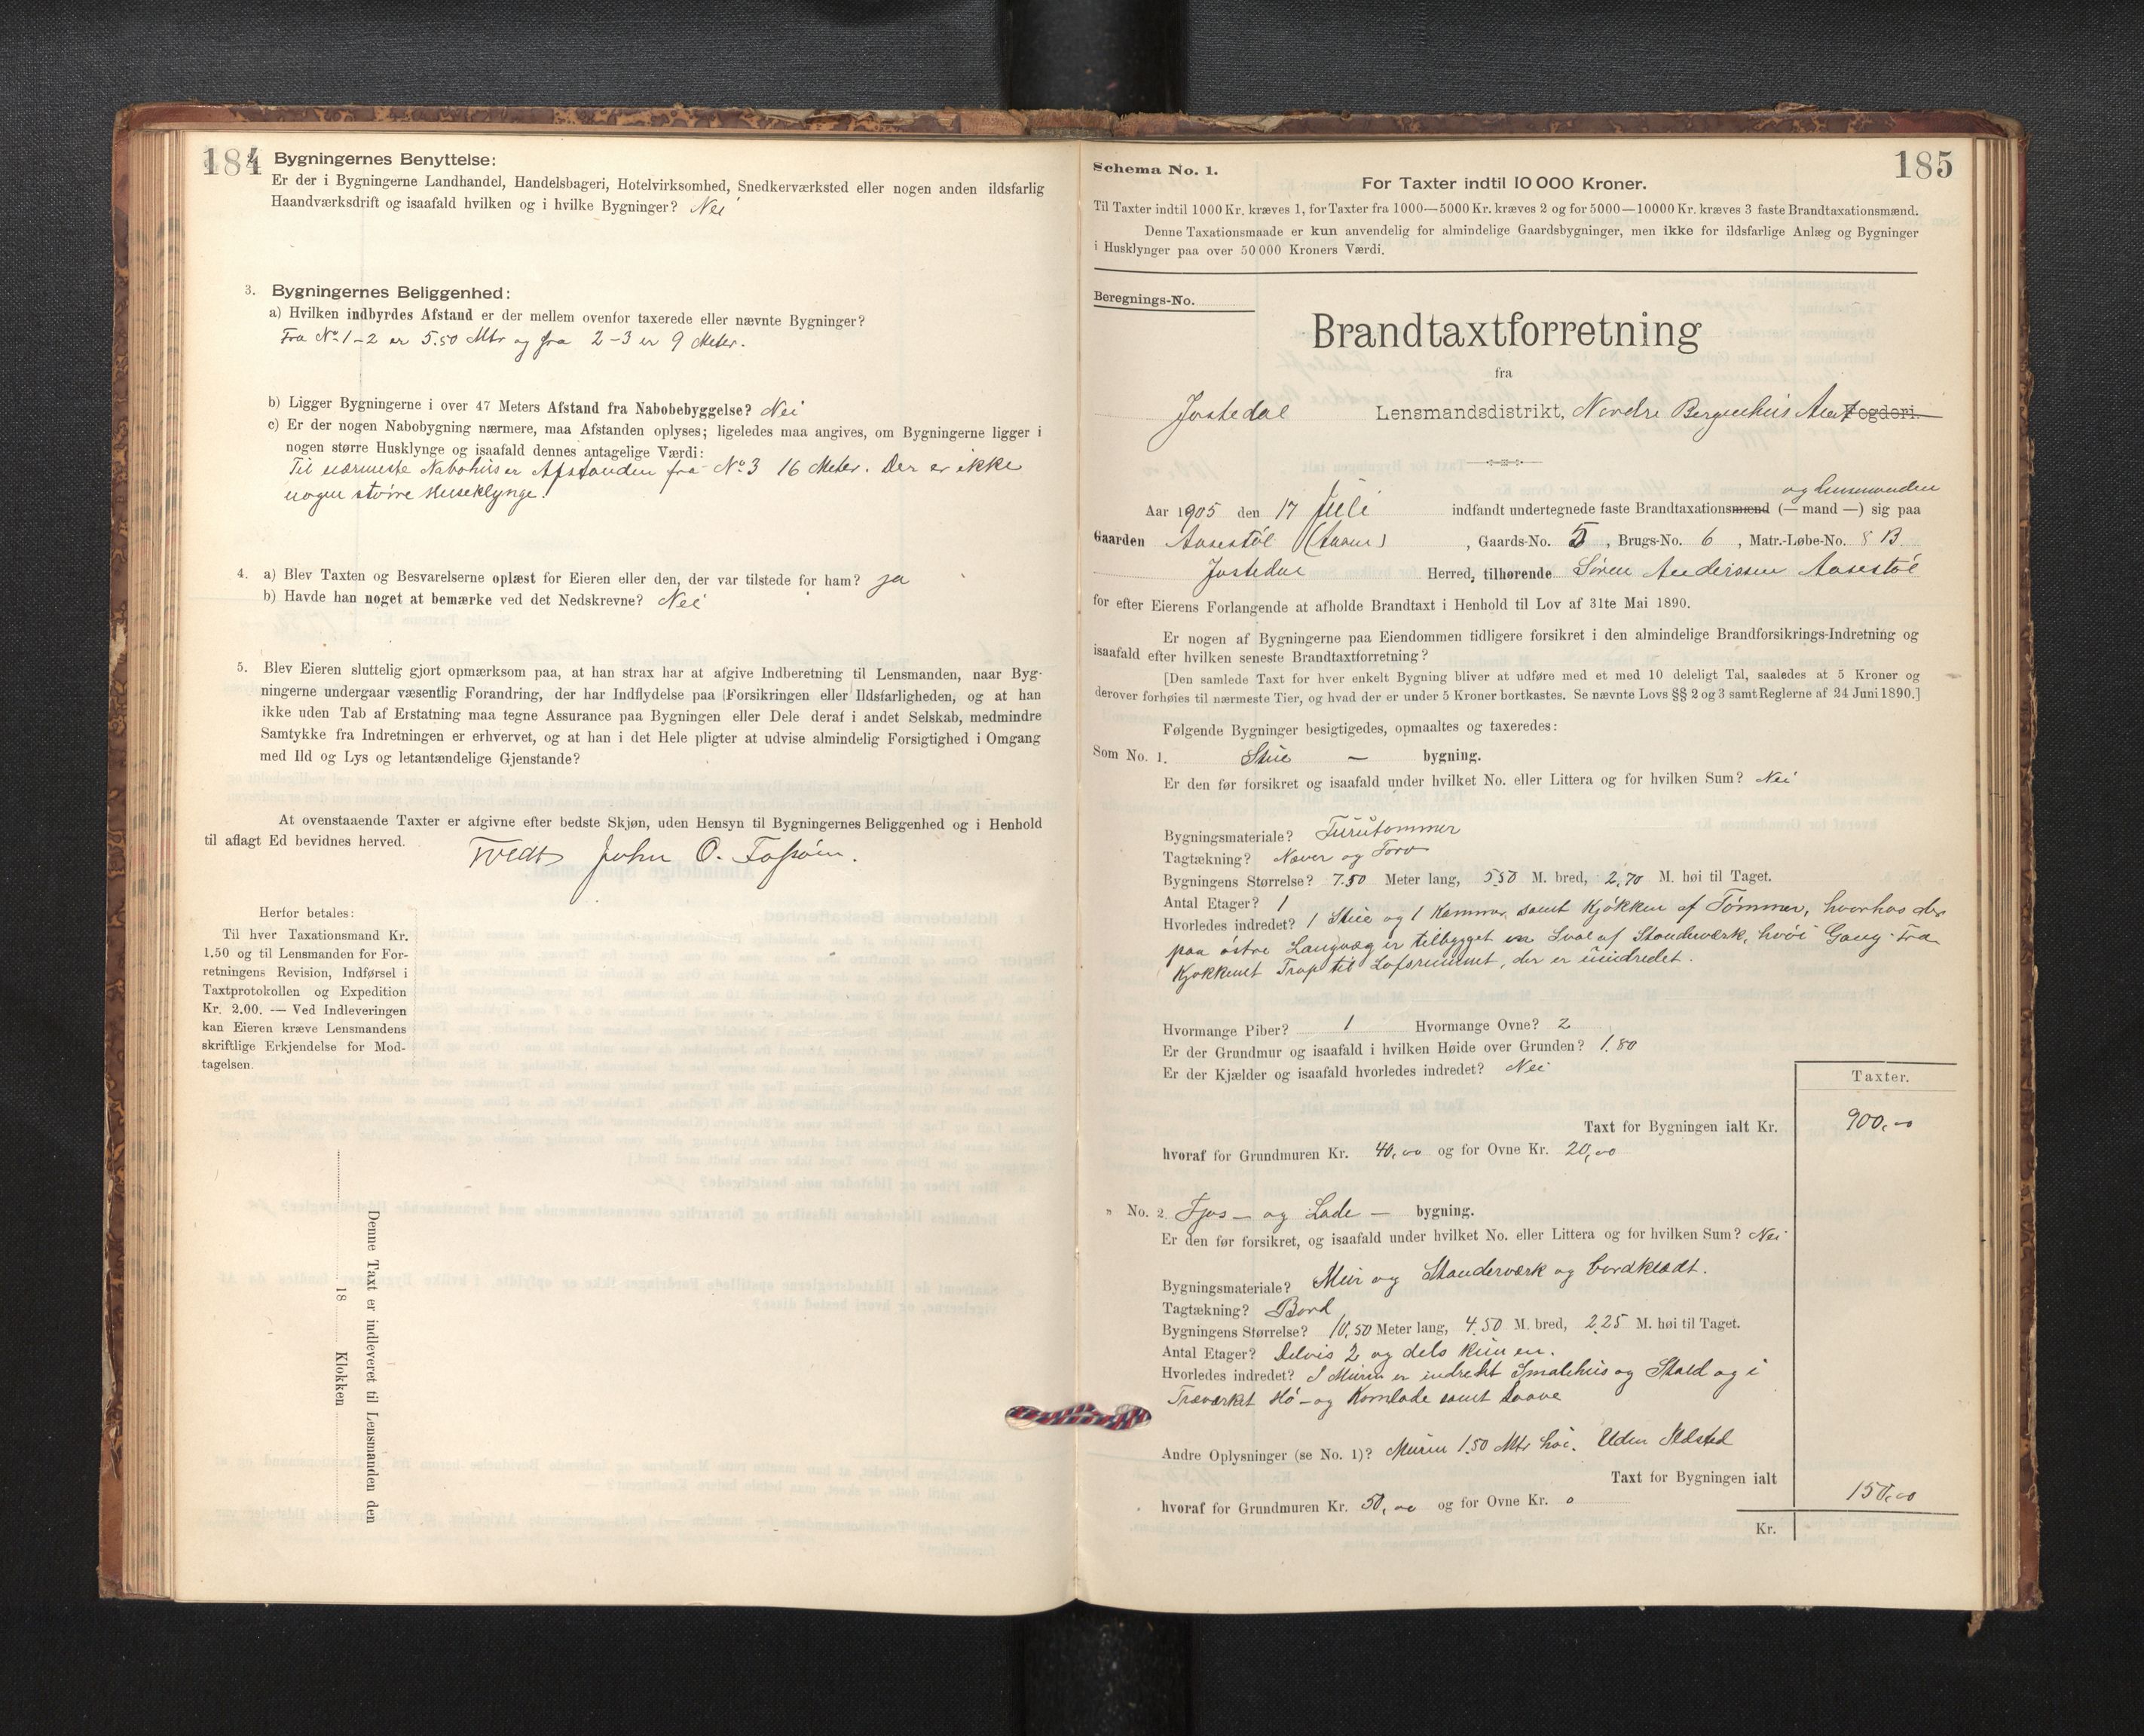 184
Bygningernes Benyttelse:
Er der i Bygningerne Landhandel, Handelsbageri, Hotelvirksomhed, Snedkerværksted eller nogen anden ildsfarlig
Haandværksdrift og isaafald hvilken og i hvilke Bygninger? Nei
3. Bygningernes Beliggenhed:
a) Hvilken indbyrdes Afstand er der mellem ovenfor taxerede eller nævnte Bygninger?
Fra No 1-2 er 5.50 Mtr og fra 2-3 er 9 Meter.
b) Ligger Bygningerne i over 47 Meters Afstand fra Nabobebyggelse? Nei
c) Er der nogen Nabobygning nærmere, maa Afstanden oplyses; ligeledes maa angives, om Bygningerne ligger i
nogen større Husklynge og isaafald dennes antagelige Værdi:
Til nærmeste Nabohus er Afstanden fra No 3 16 Meter. Der er ikke
nogen større Huseklynge.
4. a) Blev Taxten og Besvarelserne oplæst for Eieren eller den, der var tilstede for ham? ja
b) Havde han noget at bemærke ved det Nedskrevne? Nei
5. Blev Eieren sluttelig gjort opmærksom paa, at han strax har at afgive Indberetning til Lensmanden, naar Byg-
ningerne undergaar væsentlig Forandring, der har Indflydelse paa Forsikringen eller Ildsfarligheden, og at han
ikke uden Tab af Erstatning maa tegne Assurance paa Bygningen eller Dele deraf i andet Selskab, medmindre
Samtykke fra Indretningen er erhvervet, og at han i det Hele pligter at udvise almindelig Forsigtighed i Omgang
med Ild og Lys og letantændelige Gjenstande?
At ovenstaaende Taxter er afgivne efter bedste Skjøn, uden Hensyn til Bygningernes Beliggenhed og i Henhold
til aflagt Ed bevidnes herved.
John O.
Herfor betales:
Til hver Taxationsmand Kr.
1.50 og til Lensmanden for For-
retningens Revision, Indførsel i
Taxtprotokollen og Expedition
Kr. 2.00. — Ved Indleveringen
kan Eieren kræve Lensmandens
skriftlige Erkjendelse for Mod-
tagelsen.
Denne Taxt er indleveret til Lensmanden den
18 Klokken
185
Schema No. 1.
For Taxter indtil 10 000 Kroner.
Til Taxter indtil 1000 Kr. kræves 1, for Taxter fra 1000—5000 Kr. kræves 2 og for 5000—10000 Kr. kræves 3 faste Brandtaxationsmænd.
Denne Taxationsmaade er kun anvendelig for almindelige Gaardsbygninger, men ikke for ildsfarlige Anlæg og Bygninger
i Husklynger paa over 50 000 Kroners Værdi.
Beregnings-No.
Brandtaxtforretning
fra
Jostedal Lensmandsdistrikt, Nordre Bergenhus Amt Fogderi.
og lensmanden
Aar 1905 den 17 Juli indfandt undertegnede faste Brandtaxationsmænd (— mand —) sig paa
Gaarden Aasestøl , Gaards-No. 5 , Brugs-No. 6 , Matr.-Løbe-No. 8 B
Jostedal Herred, tilhørende Søren Anderssen Aasestøl
for efter Eierens Forlangende at afholde Brandtaxt i Henhold til Lov af 31te Mai 1890.
Er nogen af Bygningerne paa Eiendommen tidligere forsikret i den almindelige Brandforsikrings-Indretning og
isaafald efter hvilken seneste Brandtaxtforretning?
[Den samlede Taxt for hver enkelt Bygning bliver at udføre med et med 10 deleligt Tal, saaledes at 5 Kroner og
derover forhøies til nærmeste Tier, og hvad der er under 5 Kroner bortkastes. Se nævnte Lovs §§ 2 og 3 samt Reglerne af 24 Juni 1890.]
Følgende Bygninger besigtigedes, opmaaltes og taxeredes:
Som No. 1. Stue — bygning.
Er den før forsikret og isaafald under hvilket No. eller Littera og for hvilken Sum? Nei
Bygningsmateriale? Furutømmer
Tagtækning? Næver og Torv
Bygningens Størrelse? 7.50 Meter lang, 5.50 M. bred, 2,70 M. høi til Taget.
Antal Etager? 1
Hvorledes indredet? 1 Stue og 1 Kammer, samt Kjøkken af Tømmer, hvorhos der
paa østre Langvæg er tilbygget en Sval af Standerværk, hvori Gang. Fra
Kjøkkenet Trap til Loftsrummet, der er uindredet.
Hvormange Piber? 1 Hvormange Ovne? 2
Er der Grundmur og isaafald i hvilken Høide over Grunden? 1.80
Er der Kjælder og isaafald hvorledes indredet? Nei
Taxter.
Taxt for Bygningen ialt Kr. 900,00
hvoraf for Grundmuren Kr. 40,00 og for Ovne Kr. 20,00
" No. 2. Fjøs — og Lade — bygning.
Er den før forsikret, og isaafald under hvilket No. eller Littera og for hvilken Sum? Nei
Bygningsmateriale? Mur og Standerværk og bordklædt.
Tagtækning? Bord
Bygningens Størrelse? 10,50 Meter lang, 4.50 M. bred, 2.25 M. høi til Taget.
Antal Etager? Delvis 2 og dels kun en.
Hvorledes indredet? I Muren er indredet Smalehus og Stald og i
Træværket Hø- og Kornlade samt Laave
Andre Oplysninger (se No. 1)? Muren 1.50 Mtr høi. Uden Ildsted
Taxt for Bygningen ialt 150,00
hvoraf for Grundmuren Kr. 50,00 og for Ovne Kr. 0
Kr.